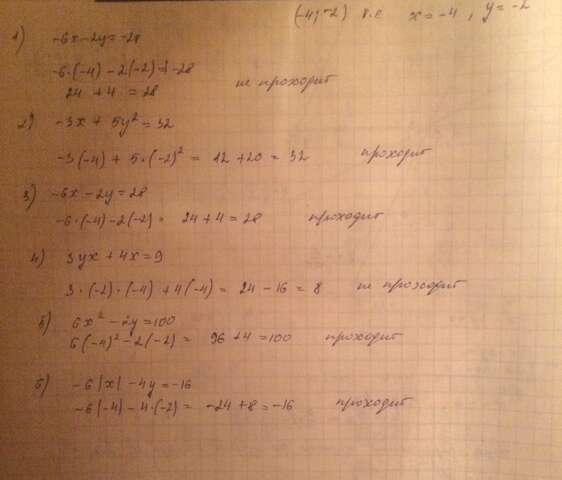 (-4; -2) т.е x = -4, y = -2
1) -6x - 2y = -28
-6·(-4) - 2(-2) = -28
24 + 4 = 28 не проходит
2) -3x + 5y² = 32
-3(-4) + 5·(-2)² = 12 + 20 = 32 проходит
3) -6x - 2y = 28
-6·(-4) - 2(-2) = 24 + 4 = 28 проходит
4) 3yx + 4x = 9
3·(-2)·(-4) + 4(-4) = 24 - 16 = 8 не проходит
5) 6x² - 2y = 100
6(-4)² - 2(-2) = 96 + 4 = 100 проходит
6) -6|x| - 4y = -16
-6|-4| - 4·(-2) = -24 + 8 = -16 проходит